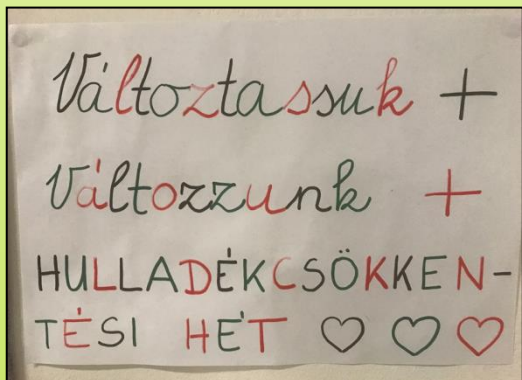 Változtassuk +
Változzunk +
HULLADÉKCSÖKKEN-
TÉSI HÉT ♡ ♡ ♡